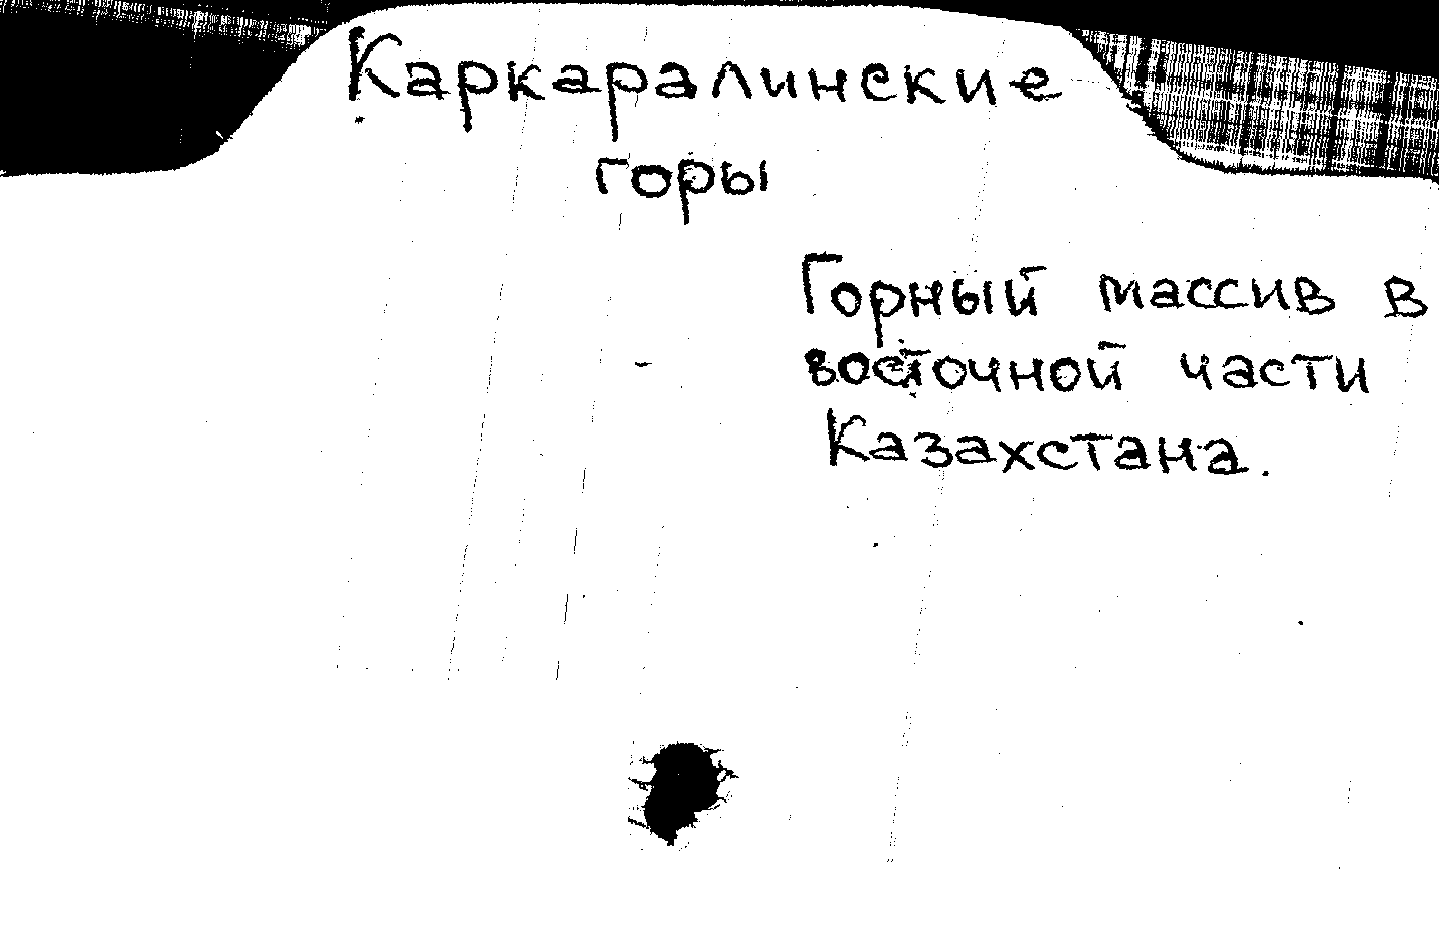 Каркаралинские
горы
Горный массив в
восточной части
Казахстана.